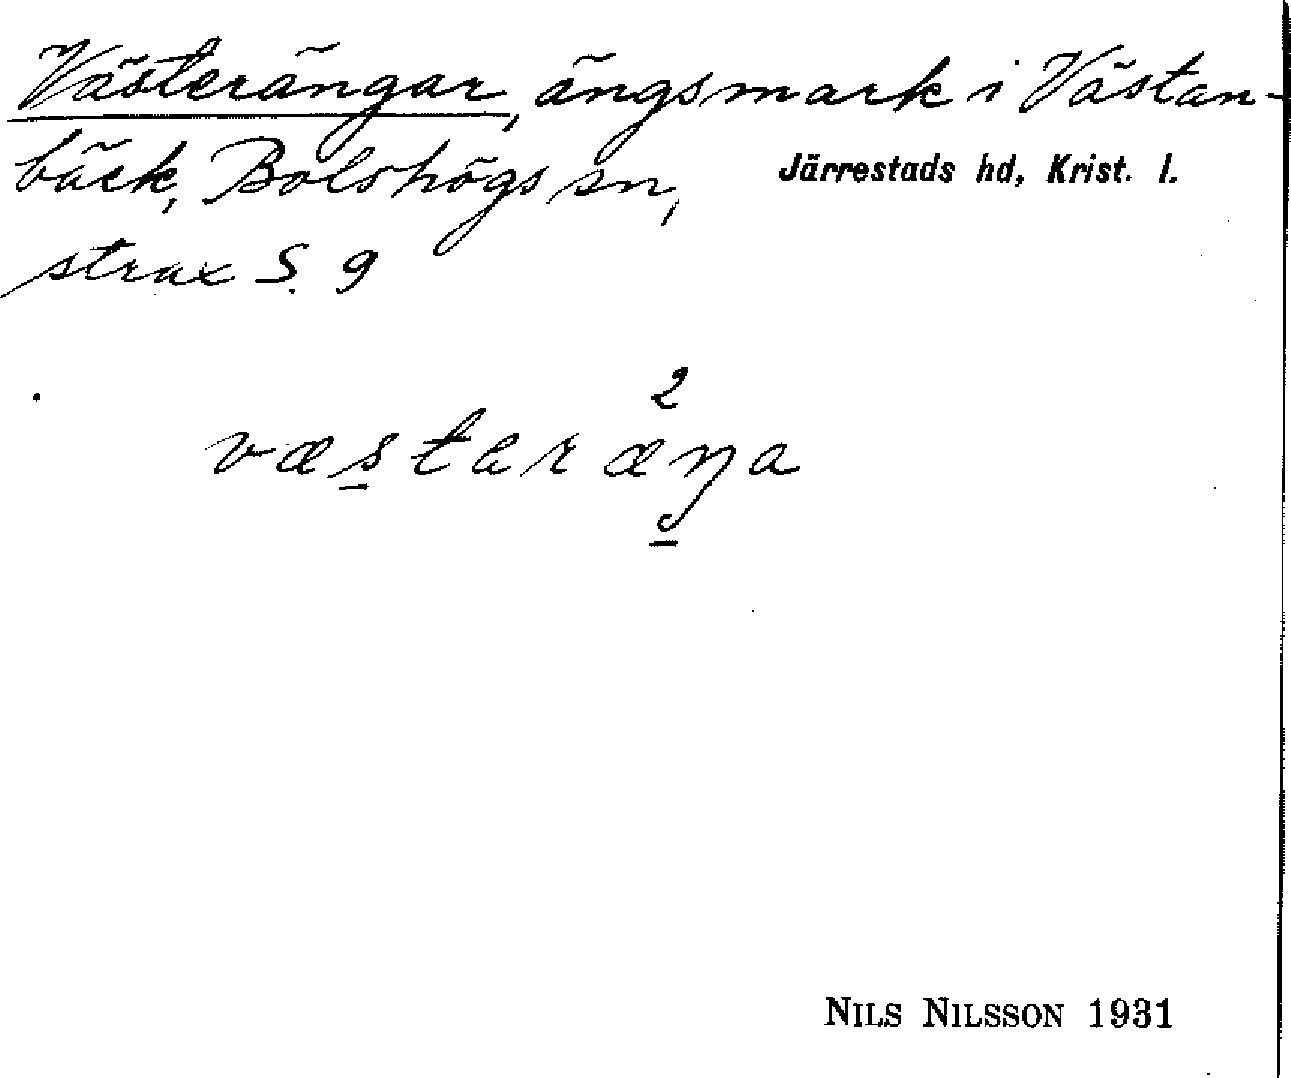 Västerängar, ängsmark i Västan-
bäck, Bolshögs sn, Järrestads hd, Krist. l.
strax S. 9
2
væstaræŋa
NILS NILSSON 1931